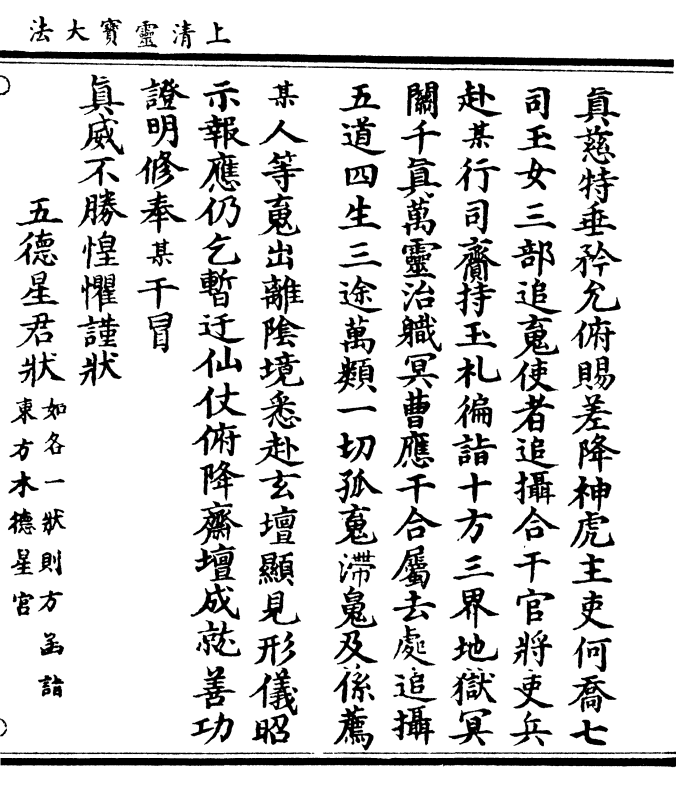 上清靈寶大法
眞慈特垂矜允俯賜差降神虎主吏何喬七
司玉女三部追䰟使者追攝合干官將吏兵
赴某行司齎持玉札徧詣十方三界地獄冥
關千眞萬靈治職冥曹應干合屬去處追攝
五道四生三途萬類一切孤䰟滯鬼及係薦
某人等䰟出離陰境悉赴玄壇顯見形儀昭
示報應仍乞暫迂仙仗俯降齋壇成就善功
證明修奉某干冒
眞威不勝惶懼謹狀
五德星君狀如各一狀則方函詣
東方木德星官